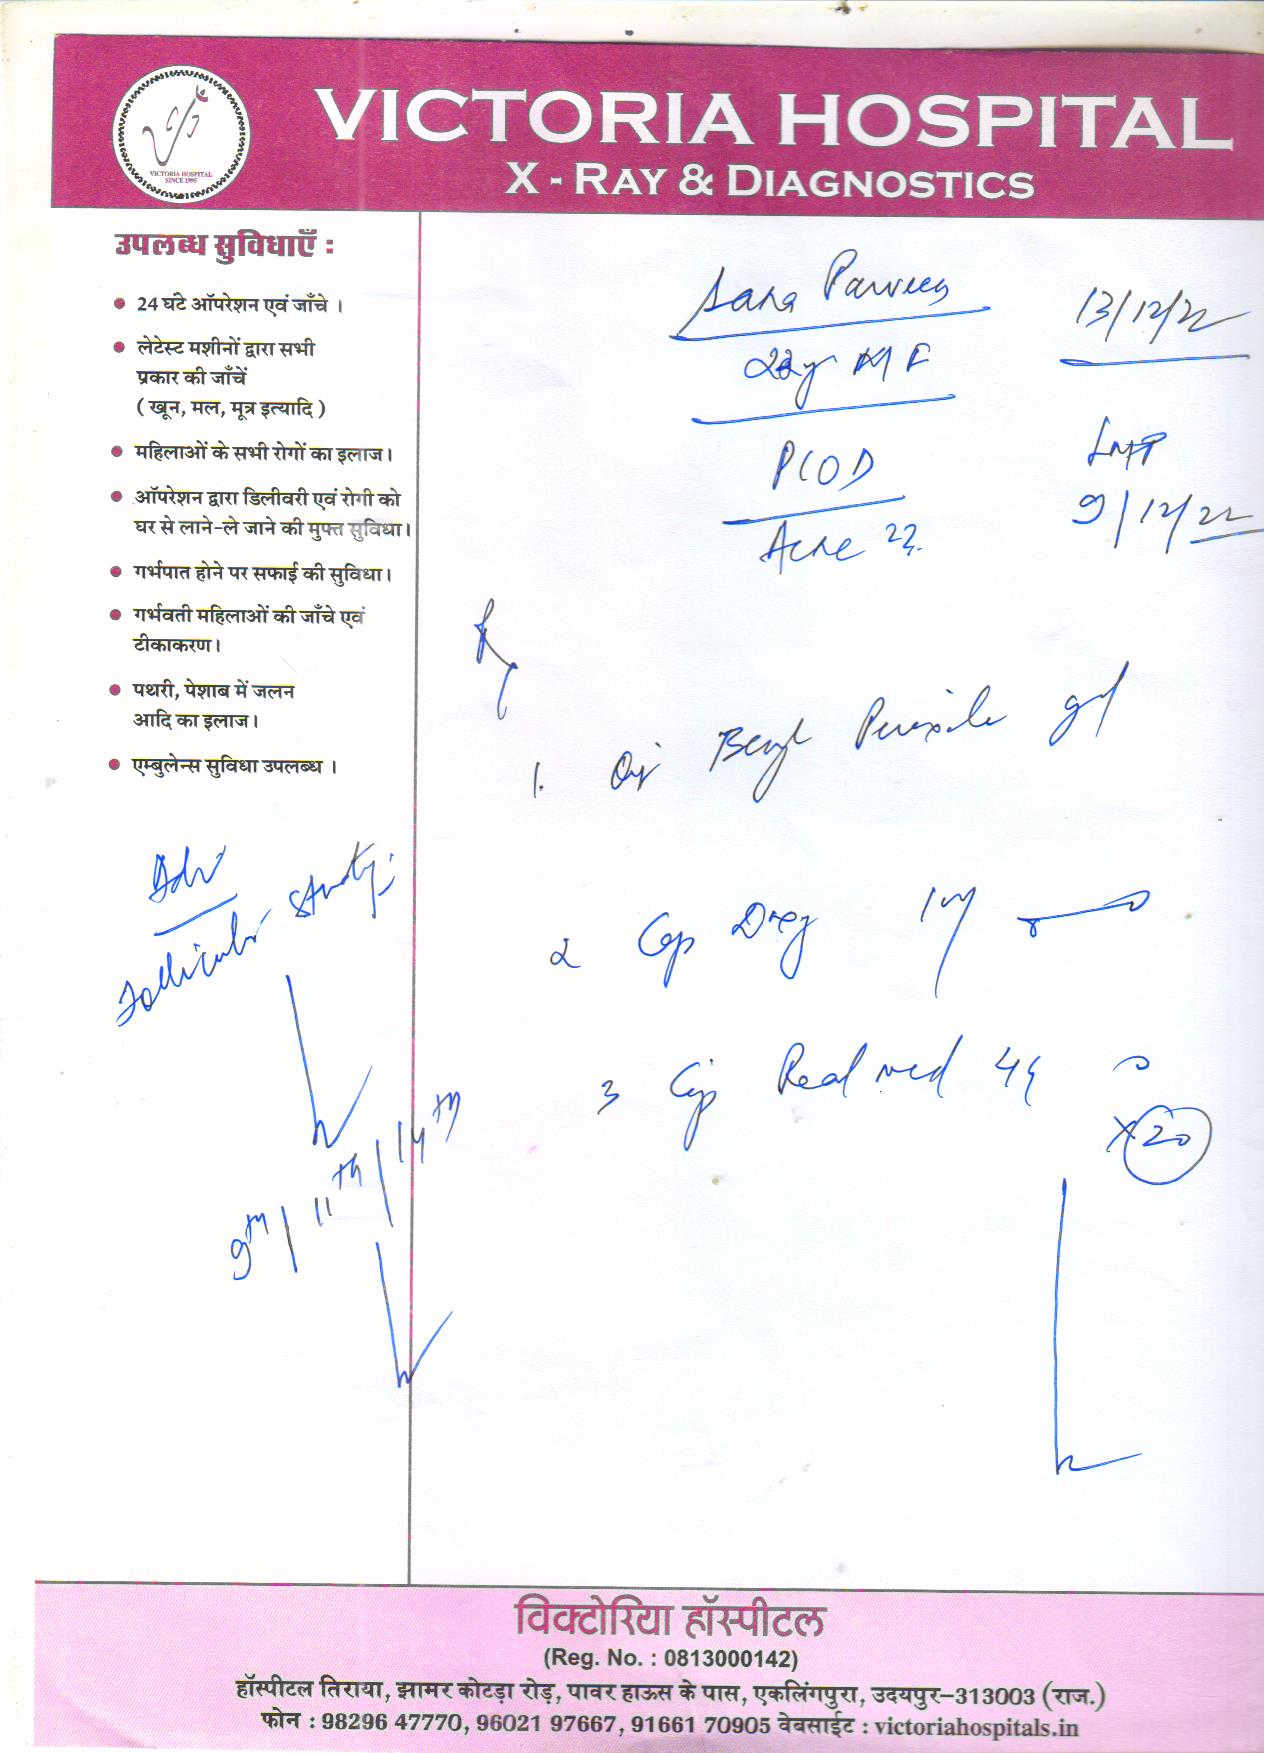 VICTORIA HOSPITAL
SINCE 1995
VICTORIA HOSPITAL
X - RAY & DIAGNOSTICS
उपलब्ध सुविधाएँ :
24 घंटे ऑपरेशन एवं जाँचे ।
लेटेस्ट मशीनों द्वारा सभी
प्रकार की जाँचें
( खून, मल, मूत्र इत्यादि )
महिलाओं के सभी रोगों का इलाज।
ऑपरेशन द्वारा डिलीवरी एवं रोगी को
घर से लाने-ले जाने की मुफ्त सुविधा।
गर्भपात होने पर सफाई की सुविधा।
गर्भवती महिलाओं की जाँचे एवं
टीकाकरण।
पथरी, पेशाब में जलन
आदि का इलाज।
एम्बुलेन्स सुविधा उपलब्ध ।
Adv
Follicular Study
9th / 11th / 14th
Sana Parveen 13/12/22
F
PCOD LMP
Acne 9/12/22
Rx
1. Benzyl Peroxide gel
2 Cap Doxy
3 Cap
x 20
विक्टोरिया हॉस्पीटल
(Reg. No. : 0813000142)
हॉस्पीटल तिराया, झामर कोटड़ा रोड़, पावर हाऊस के पास, एकलिंगपुरा, उदयपुर-313003 (राज.)
फोन : 98296 47770, 96021 97667, 91661 70905 वेबसाईट : victoriahospitals.in